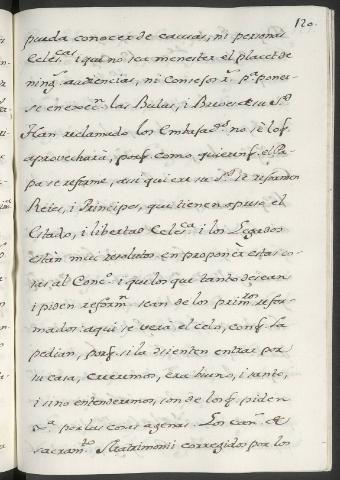 120.
pueda conocer de causas, ni personas
Ecles.cas i que no sea menester el placet de
ning.s audiencias, ni Consejos R.s p.a poner-
se en execn. las Bulas, i Breves de su S.d
Han reclamado los Embajad.s no sè lo q.
aprovecharà, porq. como quieren q. el Pa-
pa se reforme, assi quiere su S.d se reformen
Reies, i Principes, que tienen opuso el
Estado, i libertad Ecles.ca i los Legados
estàn mui resolutos en proponèr estas co-
sas al Conc.o i que los que tanto desean
i piden reform.n sean de los prim.ros refor-
mados: aqui se verà el celo, con q. la
pedian, porq. si la dejenten entrar por
su casa, creeremos, era bueno, i santo,
i sino entenderemos, son de los q. piden
por las cosas agenas. Los Can.s de
Sacram.to Matrimonii corregidos por los